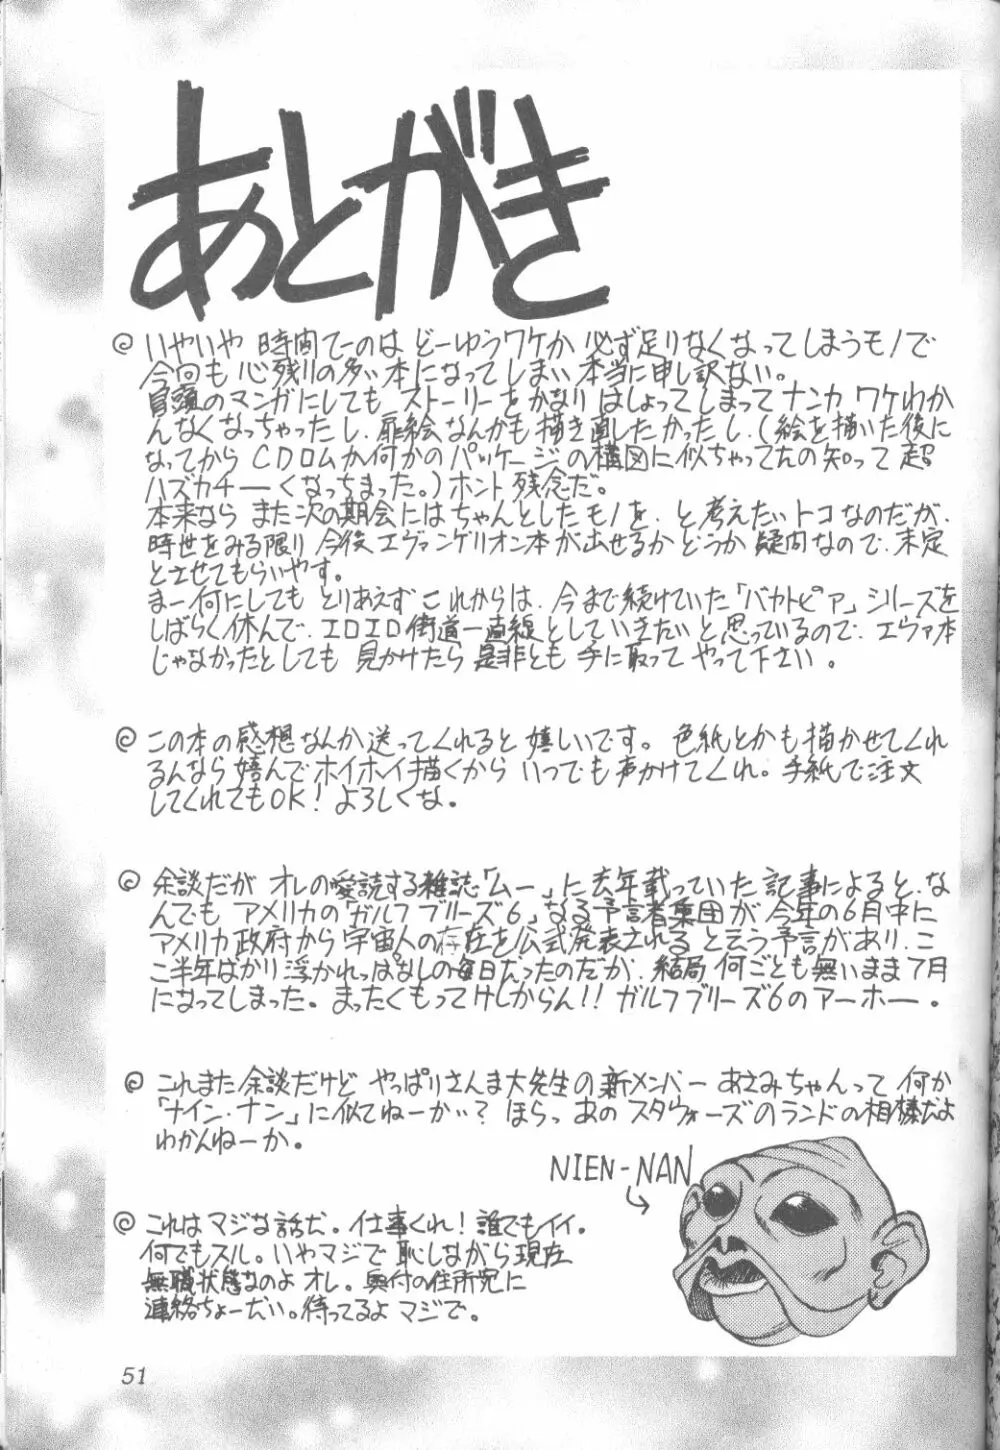 あとがき
いやいや 時間てーのは どーゆうワケか 必ず足りなくなってしまうモノで
今回も 心残りの多い本になってしまい 本当に申し訳ない。
冒頭のマンガにしても ストーリーをかなりはしょってしまって ナンカ ワケわか
んなくなっちゃったし、扉絵なんかも描き直したかったし、(絵を描いた後に
なってから CDロムか何かの パッケージの構図に似ちゃってたの知って 超
ハズカチーくなっちまった。)ホント残念だ。
本来なら また次の期会にはちゃんとしたモノを、と考えたいトコなのだが、
時世をみる限り 今後エヴァンゲリオン本が出せるかどうか 疑問なので、未定
とさせてもらいやす。
まー何にしても とりあえず これからは、今まで続けていた「バカトピア」シリーズを
しばらく休んで、エロエロ街道一直線としていきたいと思っているので、エヴァ本
じゃなかったとしても 見かけたら 是非とも 手に取って やって下さい。
この本の感想なんか送ってくれると 嬉しいです。 色紙とかも描かせてくれ
るんなら 嬉んでホイホイ描くから いつでも声かけてくれ。手紙で注文
してくれてもOK! よろしくな。
余談だが オレの愛読する雑誌「ムー」に去年載っていた 記事によると、な
んでも アメリカの「ガルフブリーズ6」なる予言者集団が 今年の6月中に
アメリカ政府から 宇宙人の存在を公式発表されると云う予言があり、こ
こ半年ばかり 浮かれっぱなしの毎日だったのだが、結局 何ごとも無いまま7月
になってしまった。 まったくもってけしからん!! ガルフブリーズ6のアーホー。
これまた 余談だけど やっぱりさんま大先生の 新メンバー あさみちゃんって 何か
「ナイン・ナン」に似てねーかい? ほらっ あの スタウォーズのランドの相棒だよ
わかんねーか。
NIEN-NAN
これは マジな話だ。 仕事くれ! 誰でもイイ。
何でもスル。いやマジで 恥しながら現在
無職状態なのよ オレ。奥付の住所宛に
連絡ちょーだい。待ってるよ マジで。
51